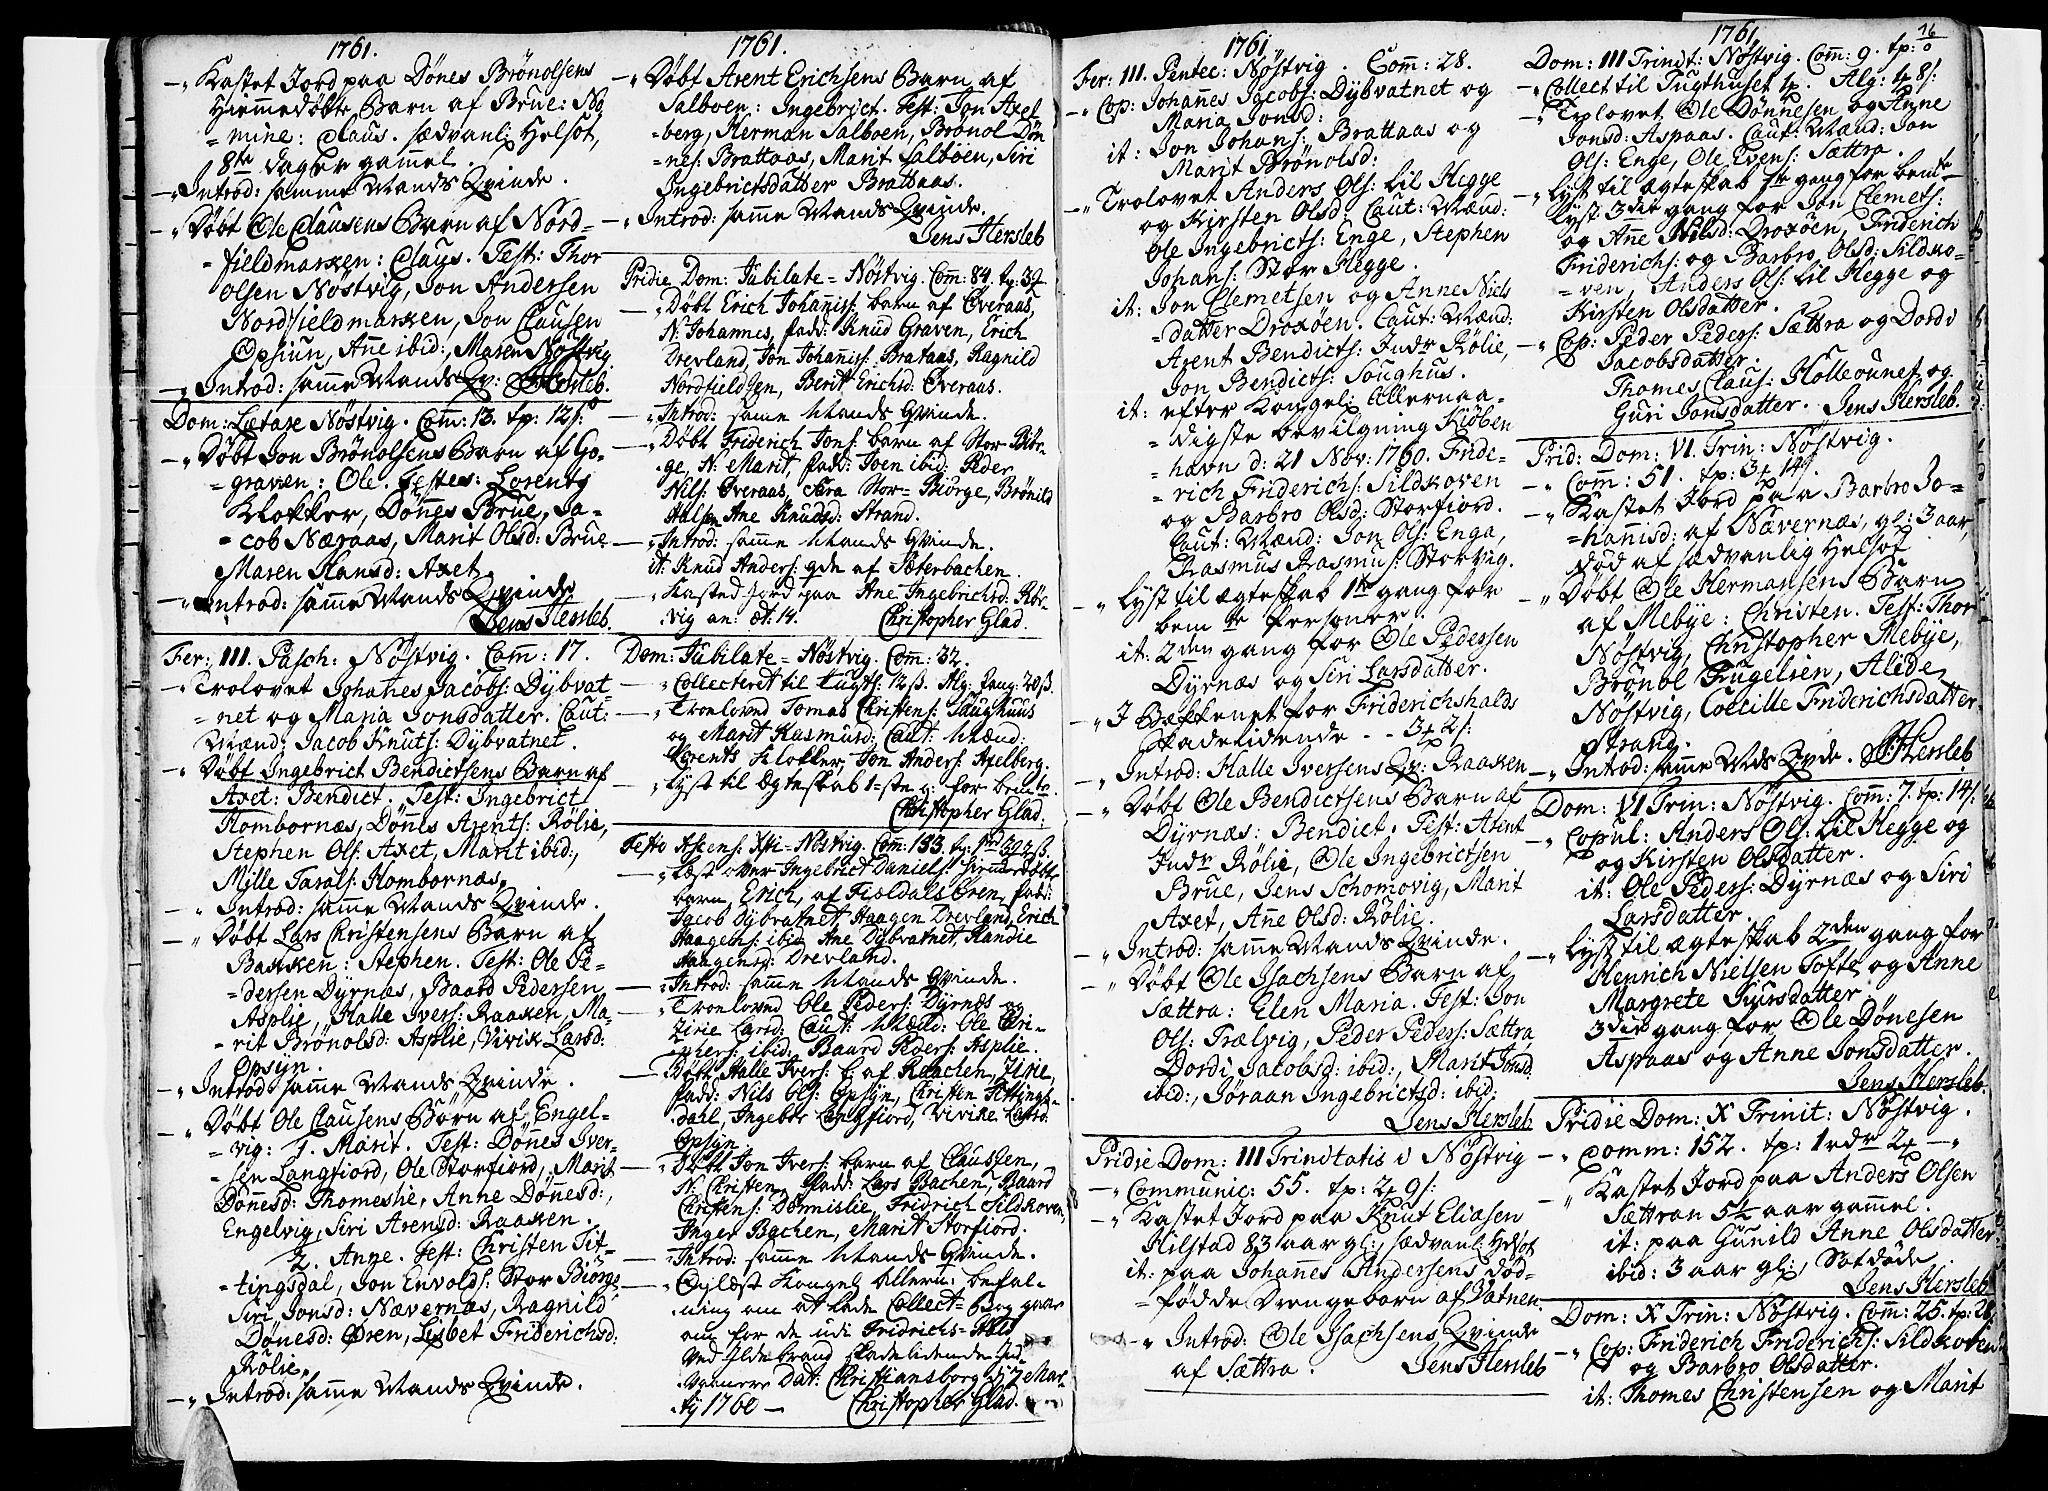 1761.
—„ Kastet Jord paa Dönes Brönolsens
Hiemmedöbte Barn af Brue: No
= mine: Claus. sædvanl: Helsot,
8te dager gammel.
—„ Introd: samme Mands Qvinde.
—„ Döbt Ole Clausens Barn af Nord=
= fieldmarken: Claus. Test: Thor
Olsen Nöstvig, Jon Andersen
Nordfieldmarken, Jon Clausen
Opsiun, Añe ibid:, Maren Nöstvig
—„ Introd: samme Mands Qv: JHersleb.
Dom: Lætare Nöstvig. Com̃: 13. tp: 12 s:
—„ Döbt Jon Brönolsens Barn af Go=
= graven: Ole. Testes: Lorentz
Klokker, Dönnes Brue, Ja=
= cob Næraas, Marit Olsd: Brue
Maren Hansd: Axet.
—„ Introd: samme Mands Qvinde
Jens Hersleb.
Fer: III. Pasch: Nöstvig. Com̃: 17.
—„ Trolovet Johañes Jacobs: Dybvat
= net og Maria Jonsdatter. Caut:
Mænd: Jacob Knuts: Dybvatnet.
—„ Döbt Ingebrict Bendictsens Barn af
Axet: Bendict. Test: Ingebrict
Hombornæs, Dönnes Arents: Rölie,
Stephen Ols: Axet, Marit ibid:,
Mille Taralss: Hombornæs,
—„ Introd: samme Mands Qvinde.
—„ Döbt Lars Christensens Barn af
Bakken: Stephen. Test: Ole Pe=
= dersen Dyrnæs, Baard Pedersen
Asplie, Halle Ivers: Raaken, Ma=
= rit Brönolsd: Asplie, Vivik Larsd:
Opsyn.
—„ Introd: samme Mands Qvinde.
—„ Döbt Ole Clausens Börn af Engel=
= vig: 1. Marit. Test: Dönnes Iver=
= sen Langfiord, Ole Storfiord, Marit
Dönnesd: Thomeslie, Anne Dönnesd:,
Engelvig, Siri Arensd: Raaken.
2. Anne. Test: Christen Tit=
= tingsdal, Jon Envolds: Stor Biörge
Siri Jonsd: Nævernæs, Ragnild
Dönesd: Ören, Lisbet Friderichsd:
Rölie.
—„ Introd: samme Mands Qvinde.
1761.
—„ Döbt Arent Erichsens Barn af
Salboen: Ingebrict. Test: Jon Axel=
= berg, Herman Salboen, Brönol Dön=
= nes: Brattaas, Marit Salböen, Siri
Ingebrictsdatter Brattaas.
—„ Introd: samme Mands Qvinde.
Jens Hersleb
Pridie Dom: Jubilate = Nöstvig. Com̃: 84.
— Döbt Erich Johaniss: barn af Överaas,
N: Johannes, fadd: Knud Graven, Erich
Drevland, Jon Johaniss: Brataas, Ragnild
Nordfieldjen, Berit Erichsd: Överaas.
—„ Introd: samme Mands Qvinde.
— Döbt Friderich Jons: barn af Stor-Biör=
ge, N: Marit, fadd: Joen ibid: Peder
Nils: Överaas, Sara Stor= Biörge, Brönild
Ane Knudsd: Strand.
—„ Introd: samme Mands Qvinde.
it: Knud Anders: qde af Sæterbachen.
— Kasted Jord paa Ane Ingebrichsd: Rör=
vig an: æt: 14. Christopher Glad.
Dom: Jubilate = Nöstvig. Com̃: 32.
— Collecteret til Tugts: 12 ß.
— Troeloved Tomas Christens: Saughuus
og Marit Rasmusd: Caut: Mænd:
Lorents Klokker, Jon Anders: Axelberg.
— Lyst til Ægteskab 1=ste g: for bem̃te.
Christopher Glad.
Festo Ascens: Xsti = Nöstvig. Com̃: 133.
— Læst over Ingebrict Daniels: hiemedöbte
barn, Erich, af Fieldals Ören, fadd:
Jacob Dybvatnet, Haagen Drevland, Erich
Haagens: ibid, Ane Dybvatnet, Randie
Haagensd: Drevland.
— Introd: samme Mands Qvinde.
— Troeloved Ole Peders: Dyrnæs og
Zirie Larsd: Caut: Mæñd: Ole Chri=
ibid: Baard Peders: Asplie.
— Döbt Halle Ivers: b. af Raachen, Zirie,
fadd: Nils Ols: Opsyn, Christen Tittings=
dahl, Ingebor Langfiord, Vivike Larsd.
Opsyn.
— Döbt Jon Ivers: barn af Claussen,
N: Christen, fadd: Lars Bachen, Baard
Christens: Dönnislie, Fridrich Sildkoven,
Inger Bachen, Marit Storfiord.
— Introd: samme Mands Qvinde.
— Oplæst Kongel: Allern: befal=
ning om at lade Collect=Bog gaae
om for de udi Fridrichs=Hald
ved Ildebrand skadelidende Ind=
vaanere Dat: Christiansborg d: 7 Mar=
tij 1760 — Christopher Glad.
1761
Fer: III. Pentec: Nöstvig. Com̃: 28.
—„ Cop: Johañes Jacobs: Dybvatnet og
Maria Jonsd:
it: Jon Johans: Brattaas og
Marit Brönolsd:
—„ Trolovet Anders Ols: Lil Hegge
og Kirsten Olsd: Caut: Mænd:
Ole Ingebricts: Enge, Stephen
Johans: Stor Hegge.
it: Jon Clemetsen og Añe Niels
= datter Droxöen. Caut: Mænd:
Arent Bendicts: Indr Rölie,
Jon Bendicts: Saughus.
it: efter Kongel: Allernaa=
= digste bevilgning Kiöben
= havn d: 21 Nov: 1760. Fride=
= rich Friderichs: Sildkoven
og Barbro Olsd: Storfiord.
Caut: Mænd: Jon Ols: Enga,
Rasmus Rasmuss: Storvig.
—„ Lyst til ægteskab 1te gang for
bem te Personer.
it: 2den gang for Ole Pedersen
Dyrnæs og Siri Larsdatter.
—„ I Bækkenet for Friderichshalds
skadelidende . . 3 2 s:
—„ Introd: Halle Iversens Qv: Raaken
—„ Döbt Ole Bendictsens Barn af
Dyrnæs: Bendict. Test: Arent
Indr Rölie, Ole Ingebrictsen
Brue, Jens Schomovig, Marit
Axet, Añe Olsd: Rölie.
—„ Introd: samme Mands Qvinde.
—„ Döbt Ole Isachsens Barn af
Sættra: Elen Maria. Test: Jon
Ols: Trælvig, Peder Peders: Sættra
Dordi Jacobsd: ibid:, Marit Jonsd:
ibid:, Jöraan Ingebrictsd: ibid:
Jens Hersleb
Pridie Dom: III Trinitatis i Nöstvig
—„ Communic: 55. tp: 2 9 s:
—„ Kastet Jord paa Knut Eliasen
Hilstad 83 aar gl:, sædvanl: Helsot
it: paa Johañes Andersens död=
= födde Drengebarn af Vatnen.
—„ Introd: Ole Isachsens Qvinde
af Sættra. Jens Hersleb
1761. 16
Dom: III Trinit: Nöstvig. Com̃: 9. tp: 0
—„ Collect til Tugthuset 4. Alg: 4 8 s:
—„ Trolovet Ole Dönnesen og Añe
Jonsd: Aspaas. Caut: Mænd: Jon
Ols: Enge, Ole Evens: Sættra.
—„ Lyst til ægteskab 1te gang for bemte
Lyst 3die gang for Jon Clemets:
og Añe Nilsd: Droxöen, Friderich
Friderichs: og Barbro Olsd: Sildko=
= ven, Anders Ols: Lil Hegge og
Kirsten Olsdatter.
—„ Cop: Peder Peders: Sættra og Dordi
Jacobsdatter.
Thomes Claus: Holleounet og
Guri Jonsdatter. Jens Hersleb.
Prid: Dom: VI. Trin: Nöstvig.
—„ Com̃: 51. tp: 3 14 s.
—„ Kastet Jord paa Barbro Jo=
= hannisd: af Nævernæs, gl: 3 aar,
död af sædvanlig Helsot
—„ Döbt Ole Hermansens Barn
af Mebye: Christen. Test: Thor
Nöstvig, Christopher Mebye,
Brönol Fugelsen, Alide
Nöstvig, Coecille Friderichsdatter
Strand.
—„ Introd: samme Mds Qvde. JHersleb
Dom: VI Trin: Nöstvig. Com̃: 7. tp: 14 s:
—„ Copul: Anders Ols: Lil Hegge og
og Kirsten Olsdatter.
it: Ole Peders: Dyrnæs og Siri
Larsdatter.
—„ Lyst til ægteskab 2den gang for
Henrich Nielsen Tofte og Anne
Margrete Siursdatter
3die gang for Ole Dönesen
Aspaas og Anne Jonsdatter.
Jens Hersleb.
Pridie Dom: X Trinit: Nöstvig.
—„ Comm: 152. tp: 1 rdr 2 —„
—„ Kastet Jord paa Anders Olsen
Sættran 5½ aar gammel.
it: paa Gunild Anne Olsdatter
ibid: 3 aar gl:, Sotdöde.
Jens Hersleb
Dom: X Trin: Nöstvig. Com̃: 25. tp: 28
—„ Cop: Friderich Friderichs: Sildkoven
og Barbro Olsdatter.
it: Thomes Christensen og Marit